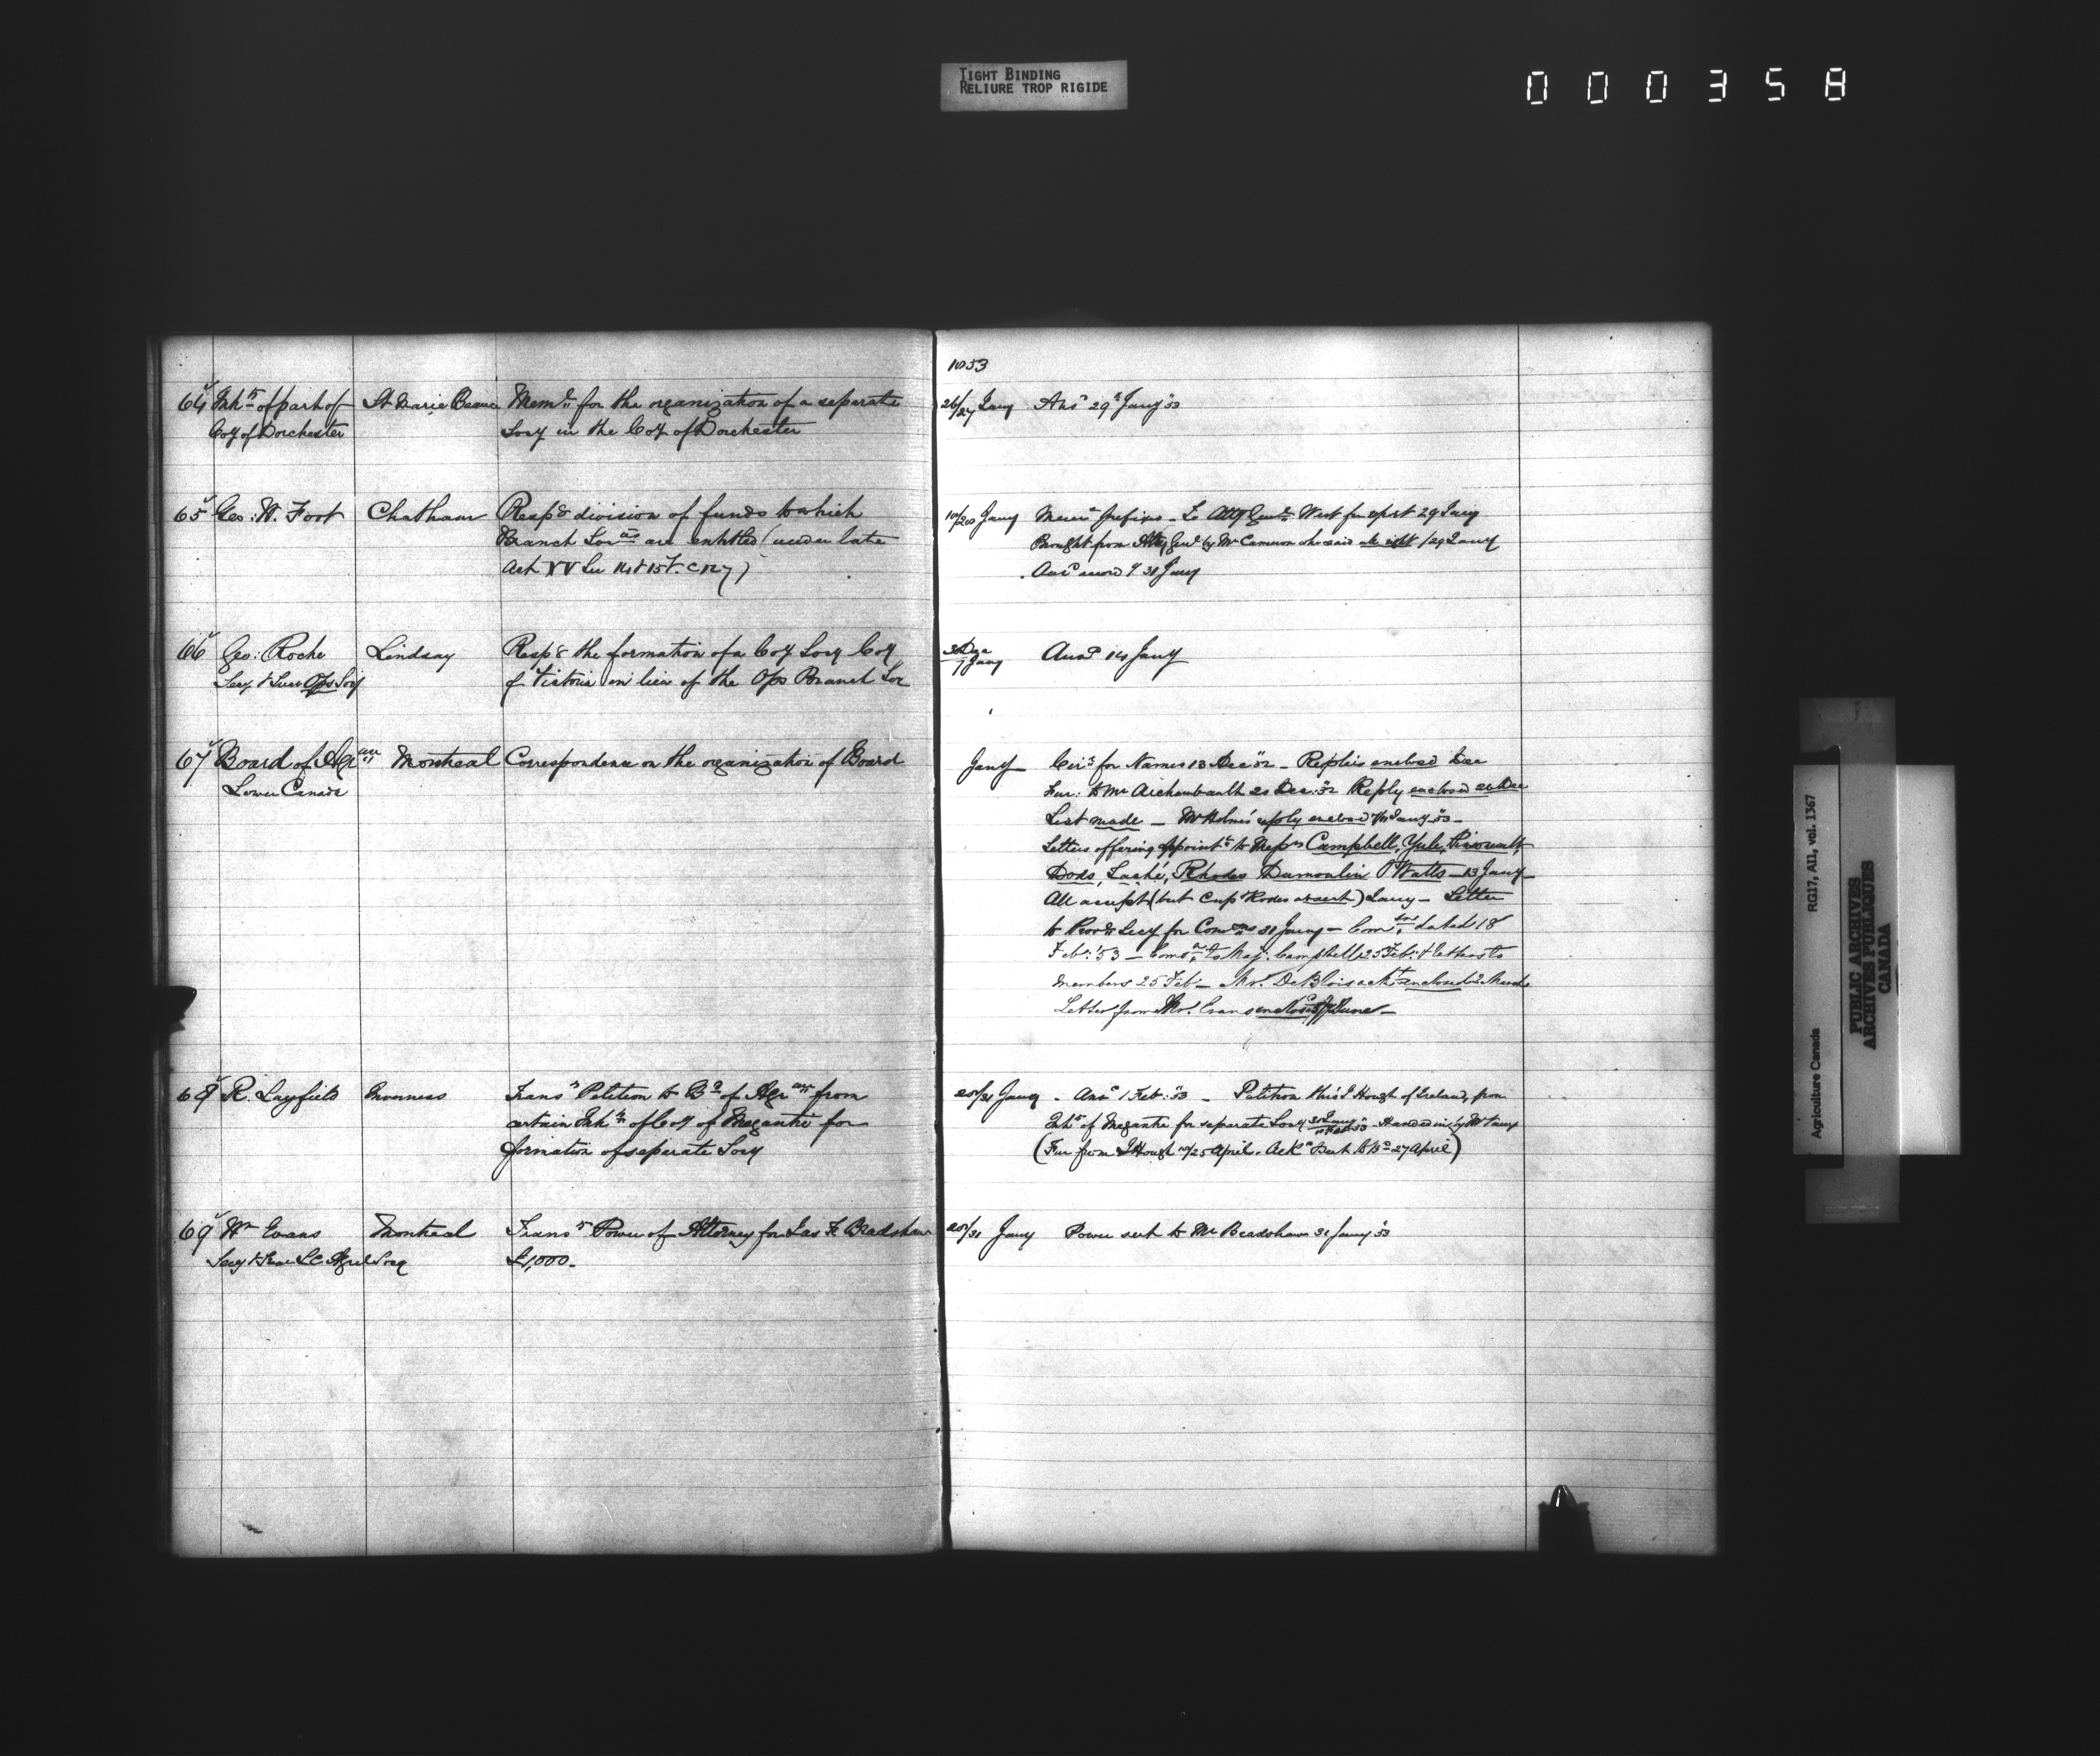 TIGHT BINDING
RELIURE TROP RIGIDE
000358
1853
64 Inhts of part of St Marie Beauce Meml for the organization of a separate 26/27 Jany Ansd 29th Jany '53
Coy of Dorchester Socy in the Coy of Dorchester
65 Geo: W. Foot Chatham Respg division of funds to which Jany Memm prefixed - To Atty Genl West for 29 Jany
Branch Socies are entitled (under late Brought from Atty Genl by Mr Cameron who said all right 29 Jany
Act XV Sec 14 & 15 V. c 127) Ansd 31 Jany
66 Geo: Roche Lindsay Respg the formation of a Coy Socy Coy Dec Ansd 14 Jany
Secy & Treas Ops Socy of Victoria in lieu of the Ops Branch Soc 7 Jany
67 Board of Agrure Montreal Correspondence on the organization of Board Jany Circr for Names 13 Dec '52 - Replies enclosed Dec
Lower Canada Fur: to Mr Archambault 20 Dec: '52 Reply enclosed Dec
List made - Mr Holmes' reply enclosed Jany '53 -
Letters offering appointt to Messrs Campbell, Yule,
Dods, Taché, Rhodes Dumoulin Watts - 13 Jany -
All accept (but Capt Rhodes absent) Jany - Letter
to Provl Secy for Comons 31 Jany - Comon dated 18
Feb: '53 - Comon to Maj: Campbell 25 Feb: & letters to
members 25 Feb - Mr. DeBlois ackt enclosed 2 March
Letter from Mr. Evans enclosed June -
68 R. Layfield Inverness Transg Petition to Bd of Agrure from /31 Jany - Ansd 1 Feb: '53 - Petition thro' J Hough of Ireland, from
certain Inhts of Coy of Megantic for Inhts of Megantic for separate Socy Handed in by
formation of separate Socy (Fur from J Hough /25 April. Ackd Sent to Bd 27 April)
69 Wm Evans Montreal Transg Power of Attorney for Jas F. Bradshaw /31 Jany Power sent to Mr Bradshaw 31 Jany '53
Secy & Treas L C Agrcl Socy £1,000 -
Agriculture Canada RG17, AII, vol. 1367
PUBLIC ARCHIVES
ARCHIVES PUBLIQUES
CANADA